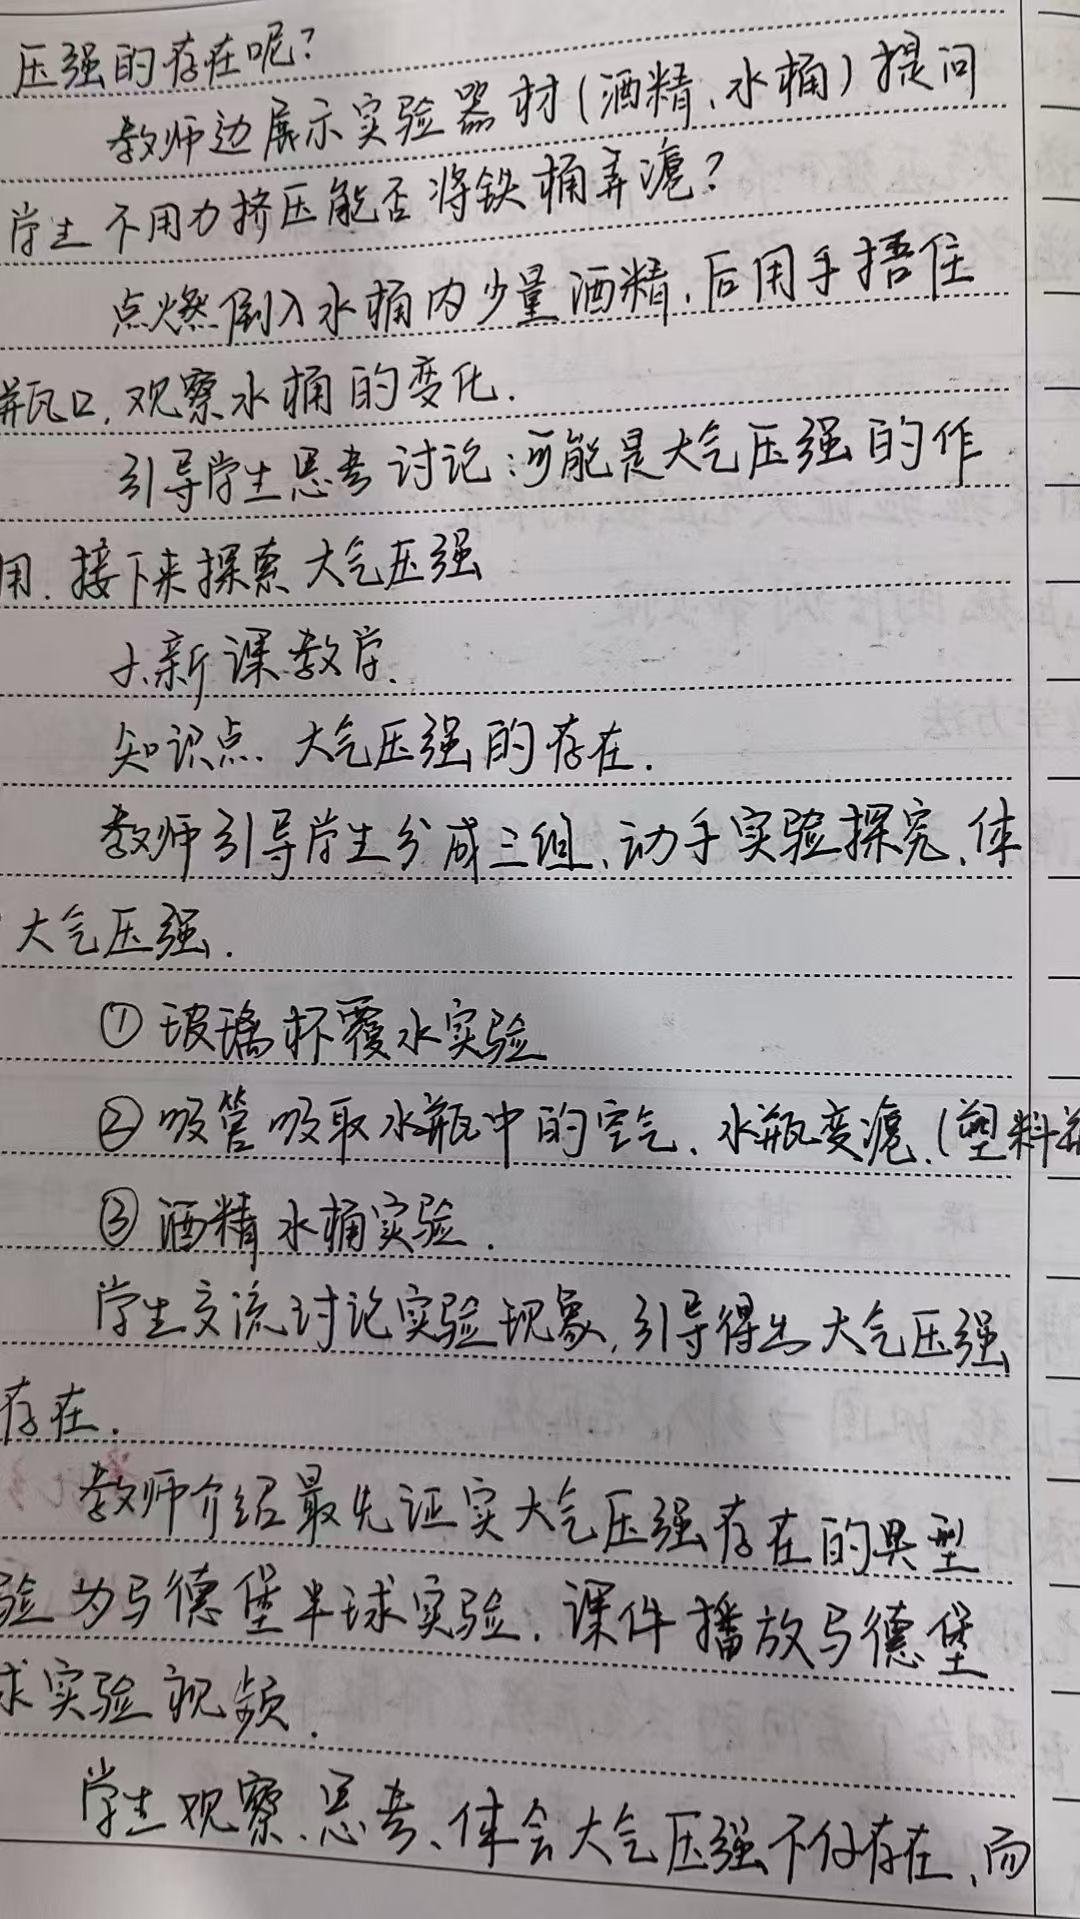 压强的存在呢?
教师边展示实验器材(酒精、水桶)提问
学生不用力挤压能否将铁桶弄瘪?
点燃倒入水桶内少量酒精,后用手捂住
瓶口,观察水桶的变化.
引导学生思考讨论:可能是大气压强的作
用.接下来探索大气压强
新课教学.
知识点.大气压强的存在.
教师引导学生分成三组、动手实验探究、体
大气压强.
①玻璃杯覆水实验
②吸管吸取水瓶中的空气.水瓶变瘪.(塑料瓶
③酒精水桶实验.
学生交流讨论实验现象,引导得出大气压强
存在.
教师介绍最先证实大气压强存在的典型
验为马德堡半球实验.课件播放马德堡
求实验视频.
学生观察、思考、体会大气压强不仅存在、而